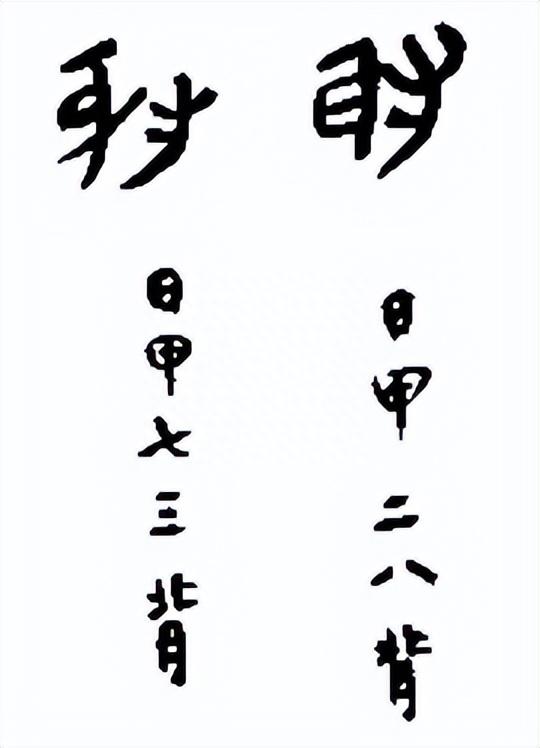 射
日甲二八背
射
日甲七三背